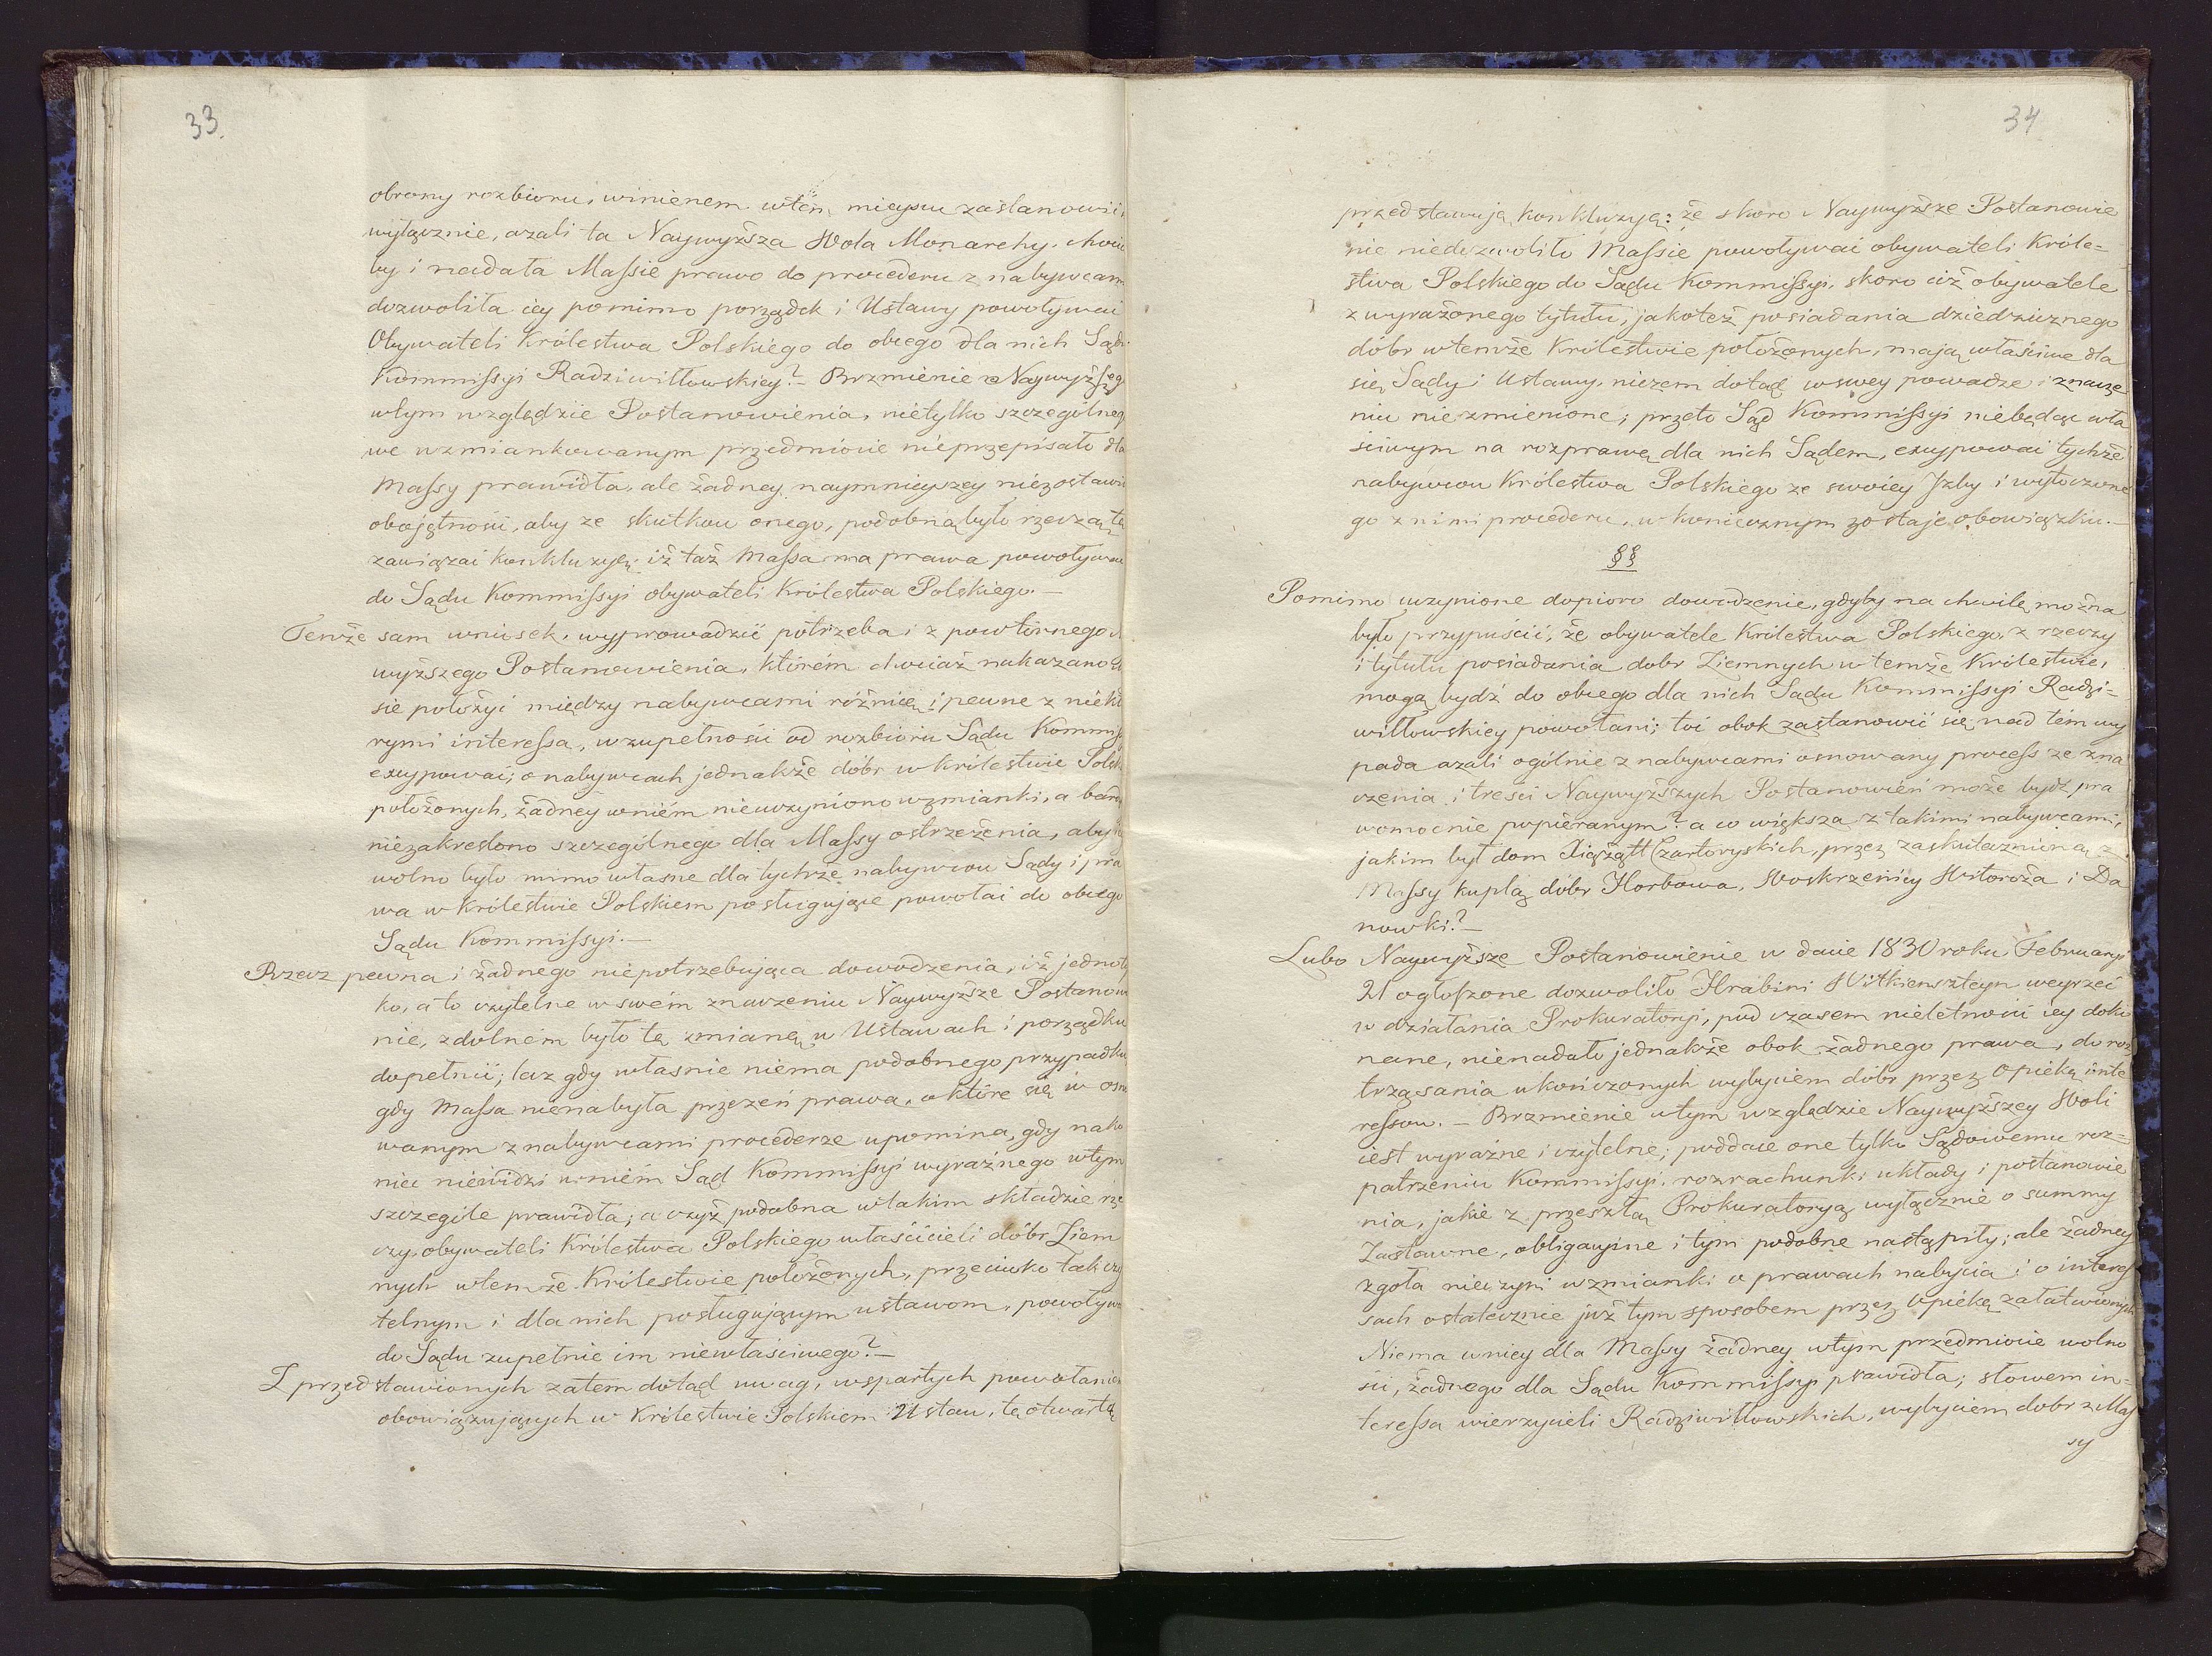 33.
obrony rozbioru, winienem wtém mieyscu zastanowić
wyłącznie, azali ta Naywyższa Wola Monarchy, choić
by i nadała Massie prawo do procederu z nabywcami
dozwoliła iey pomimo porządek i Ustawy powoływać
Obywateli Królestwa Polskiego do obcego dla nich Sądu
Kommissyi Radziwiłłowskiey? – Brzmienie Naywyższeg
wtym względzie Postanowienia, nietylko szczególneg
we wzmiankowanym przedmiocie nieprzepisało dla
Massy prawidła, ale żadney naymnieyszey niezostawi
obojętności, aby ze skutkow onego, podobną było rzeczą tę
zawiązać konkluzyą; iż taż Massa ma prawa powoływać
do Sądu Kommissyi obywateli Królestwa Polskiego. –
Tenże sam wniosek, wyprowadzić potrzeba i z powtórnego
wyższego Postanowienia, którém chociaż nakazano
sie położyć między nabywcami różnicę i pewne z niekt
rymi interessa, w zupełności od rozbioru Sądu Kommis
exeypować; o nabywcach jednakże dóbr w Królestwie Polsk
położonych, żadney wniém nieuczyniono wzmianki, a bar
niezakreślono szczególnego dla Massy ostrzeżenia, aby
wolno było mimo własne dla tychże nabywcow Sądy i pra
wa w Królestwie Polskiem posługujące powołać do obcego
Sądu Kommissyi. –
Rzecz pewna i żadnego niepotrzebująca dowodzenia, iż jedno ty
ko, a to czytelne w swém znaczeniu Naywyższe Postanow
nie, zdolném było tę zmianę w Ustawach i porządku
dopełnić; lecz gdy własnie niema podobnego przypadku
gdy Massa nienabyła przezeń prawa, o które się w osno
wanym z nabywcami procederze upomina, gdy nako
niec niewidzi w niém Sąd Kommissyi wyraźnego wtym
szczególe prawidła; a czyż podobna wtakim składzie rze
czy, obywateli Królestwa Polskiego właścicieli dóbr Ziem
nych wtemże Królestwie położonych, przeciwko tak czy
telnym i dla nich posługującym ustawom, powoływa
do Sądu zupełnie im niewłaściwego? –
Z przedstawionych zatem dotąd uwag, wspartych powołaniem
obowiązujących w Królestwie Polskiem Ustaw, tę otwartą
34
przedstawuję konkluzyą: że skoro Naywyższe Postanowie
nie niedozwoliło Massie powoływać obywateli Króle=
stwa Polskiego do Sądu Kommissyi, skoro ciż obywatele
z wyrażonego tytułu, jakoteż posiadania dziedzicznego
dóbr wtemże Królestwie położonych, mają właściwe dla
się Sądy i Ustawy, niczem dotąd w swey powadze i znacze
niu niezmienione; przeto Sąd Kommissyi niebędąc wła
ściwym na rozprawę dla nich Sądem, exeypować tychże
nabywcow Królestwa Polskiego ze swoiey Izby i wytoczone
go z nimi procederu, w koniecznym zostaje obowiązku. –
§§
Pomimo uczynione dopioro dowodzenie, gdyby na chwilę można
było przypuścić, że obywatele Królestwa Polskiego, z rzeczy
i tytułu posiadania dobr Ziemnych w temże Królestwie,
mogą bydź do obcego dla nich Sądu Kommissyi Radzi=
wiłłowskiey powołani; toć obok zastanowić się nad tém wy
pada azali ogólnie z nabywcami osnowany process ze zna
czenia i tresci Naywyższych Postanowień może bydź pra
womocnie popieranym? a co większa z takimi nabywcami,
jakim był dom Xiążątt Czartoryskich, przez zaskutecznioną z
Massy kuplą dóbr Horbowa, Woskrzenicy Witoroża i Da
nowki? –
Lubo Naywyższe Postanowienie w dacie 1830 roku Februaryi
21 ogłoszone dozwoliło Hrabini Witkienszteyn weyrzeć
w działania Prokuratoryi, pod czasem nieletności iey doko
nane, nienadało jednakże obok żadnego prawa, do roz
trząsania ukończonych wybyciem dóbr przez Opiekę inte
ressow. – Brzmienie wtym względzie Naywyższey Woli
iest wyraźne i czytelne; poddaie one tylko Sądowemu roz=
patrzeniu Kommissyi, rozrachunki układy i postanowie
nia, jakie z przeszłą Prokuratoryą wyłącznie o summy
Zastawne, obligacyine i tym podobne nastąpiły; ale żadney
zgoła nieczyni wzmianki o prawach nabycia i o interes
sach ostatecznie już tym sposobem przez Opiekę załatwionych
Niema w niey dla Massy żadney wtym przedmiocie wolno
ści, żadnego dla Sądu Kommissyi prawidła; słowem in=
teressa wierzycieli Radziwiłłowskich, wybyciem dobr z Mas
sy